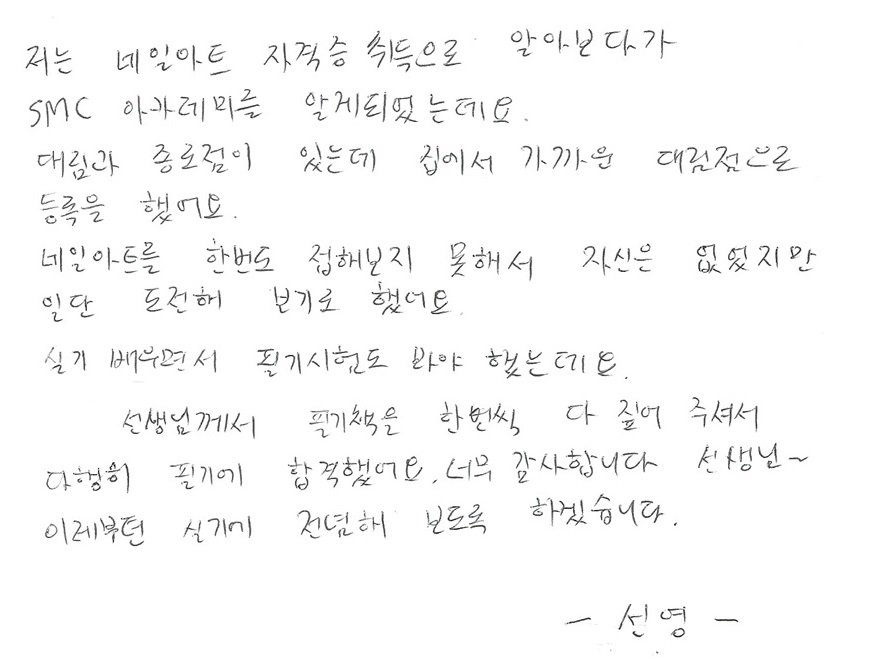 저는 네일아트 자격증 취득으로 알아보다가
SMC 아카데미를 알게되었는데요.
대림과 종로점이 있는데 집에서 가까운 대림점으로
등록을 했어요.
네일아트를 한번도 접해보지 못해서 자신은 없었지만
일단 도전해 보기로 했어요.
실기 배우면서 필기시험도 봐야 했는데요.
선생님께서 필기책을 한번씩 다 짚어 주셔서
다행히 필기에 합격했어요. 너무 감사합니다 선생님~
이제부턴 실기에 전념해 보도록 하겠습니다.
- 선영 -